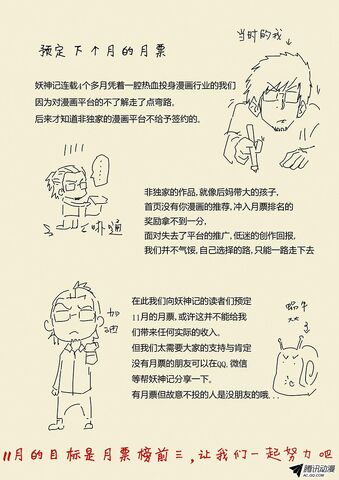 预定下个月的月票
当时的我
妖神记连载4个多月凭着一腔热血投身漫画行业的我们
因为对漫画平台的不了解走了点弯路。
后来才知道非独家的漫画平台不给予签约的。
非独家的作品,就像后妈带大的孩子,
首页没有你漫画的推荐,冲入月票排名的
奖励拿不到一分,
面对失去了平台的推广,低迷的创作回报,
我们并不气馁,自己选择的路,只能一路走下去
加油
蜗牛
在此我们向妖神记的读者们预定
11月的月票,或许这并不能给我
们带来任何实际的收入。
但我们太需要大家的支持与肯定
没有月票的朋友可以在QQ,微信
等帮妖神记分享一下。
有月票但故意不投的人是没朋友的哦...
11月的目标是月票榜前三,让我们一起努力吧
腾讯动漫
AC.QQ.COM